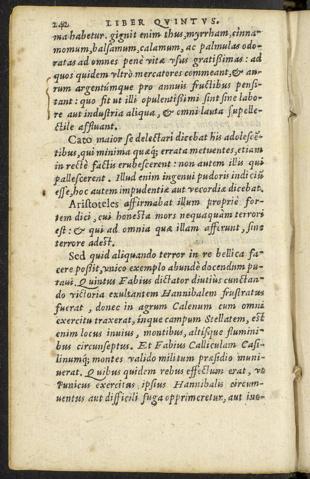 242 LIBER QVINTVS.
ma habetur. gignit enim thus, myrrham, cinna-
momum, balsamum, calamum, ac palmulas odo-
ratas ad omnes penè vitæ vsus gratißimas: ad
quos quidem vltrò mercatores commeant, & au-
rum argentúmque pro annuis fructibus pensi-
tant: quo fit ut illi opulentißimi sint sine labo-
re aut industria aliqua, & omni lauta supelle-
ctile affluant.
Cato maior se delectari dicebat his adolescē-
tibus, qui minima quæq; errata metuentes, etiam
in rectè factis erubescerent: non autem illis qui
pallescerent. Illud enim ingenui pudoris indiciū
esse, hoc autem impudentiæ aut vecordiæ dicebat.
Aristoteles affirmabat illum propriè for-
tem dici, cui honesta mors nequaquàm terrori
est: & qui ad omnia quæ illam afferunt, sine
terrore adest.
Sed quid aliquando terror in re bellica fa-
cere poßit, vnico exemplo abundè docendum pu-
taui. Quintus Fabius dictator diutius cunctan-
do victoria exultantem Hannibalem frustratus
fuerat, donec in agrum Calenum cum omni
exercitu traxerat, inque campum Stellatem, est
enim locus inuius, montibus, altisque flumini-
bus circunseptus. Et Fabius Calliculam Casi-
linumq; montes valido militum præsidio muni-
uerat. Quibus quidem rebus effectum erat, vt
Punicus exercitus ipsius Hannibalis circum-
uentus aut difficili fuga opprimeretur, aut